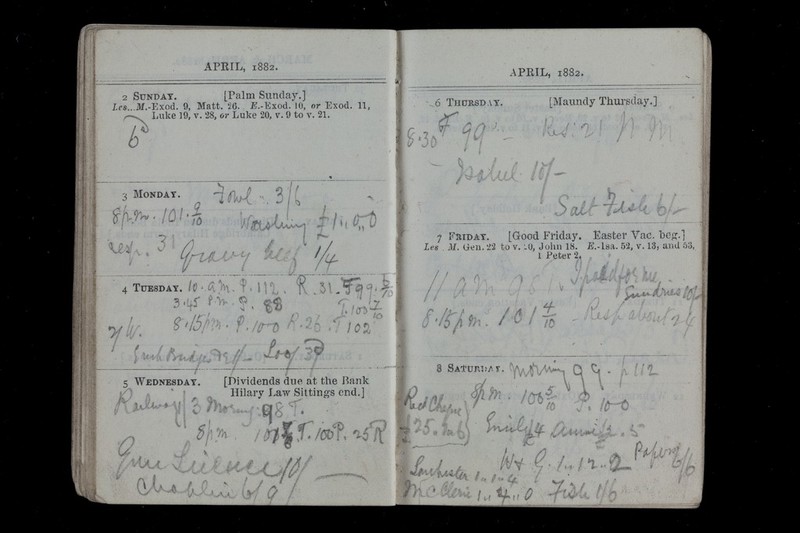 APRIL, 1882.
2 SUNDAY. [Palm Sunday.]
Les. M.-Exod. 9, Matt. 26. E.-Exod. 10, or Exod. 11,
Luke 19, v. 28, or Luke 20, v. 9 to v. 21.
6d
3 MONDAY. Fowl 3/6
8 p.m. 101 9/10 Washing £1,,0,,0
resp. 31 gravy beef 1/4
4 TUESDAY. 10. a.m. P. 112. R. 31. T 99. 5/10
3.45 P.m. P. 88 T. 103 7/10
8.15 p.m. P. 100 R. 26. T 102
3d
5 WEDNESDAY. [Dividends due at the Bank
Hilary Law Sittings end.]
Railway/3 Morning: 98 T.
8 p.m. T. 100 P. 25 R
Gun Licence 10/
Chaplin 6/9
APRIL, 1882.
6 THURSDAY. [Maundy Thursday.]
8.30 T 99 Res: 21
Isabel 10/-
Salt Fish 6/-
7 FRIDAY. [Good Friday. Easter Vac. beg.]
Les M. Gen. 22 to v. 20, John 18. E.-Isa. 52, v. 13, and 53,
1 Peter 2.
11 am 98 I paid for me
Sundries 10/-
8.15 p.m. 101 4/10 Resp about 24
8 SATURDAY. Morning 99. p 112
8 p.m. 103 5/10 P. 100
Recd Cheque
£25. Emily £4 Annie £2.5
W & G. 1,,12,,2 Papers 6/6
1,,1,,4
McClerie 1,,4,,0 Fish 1/6